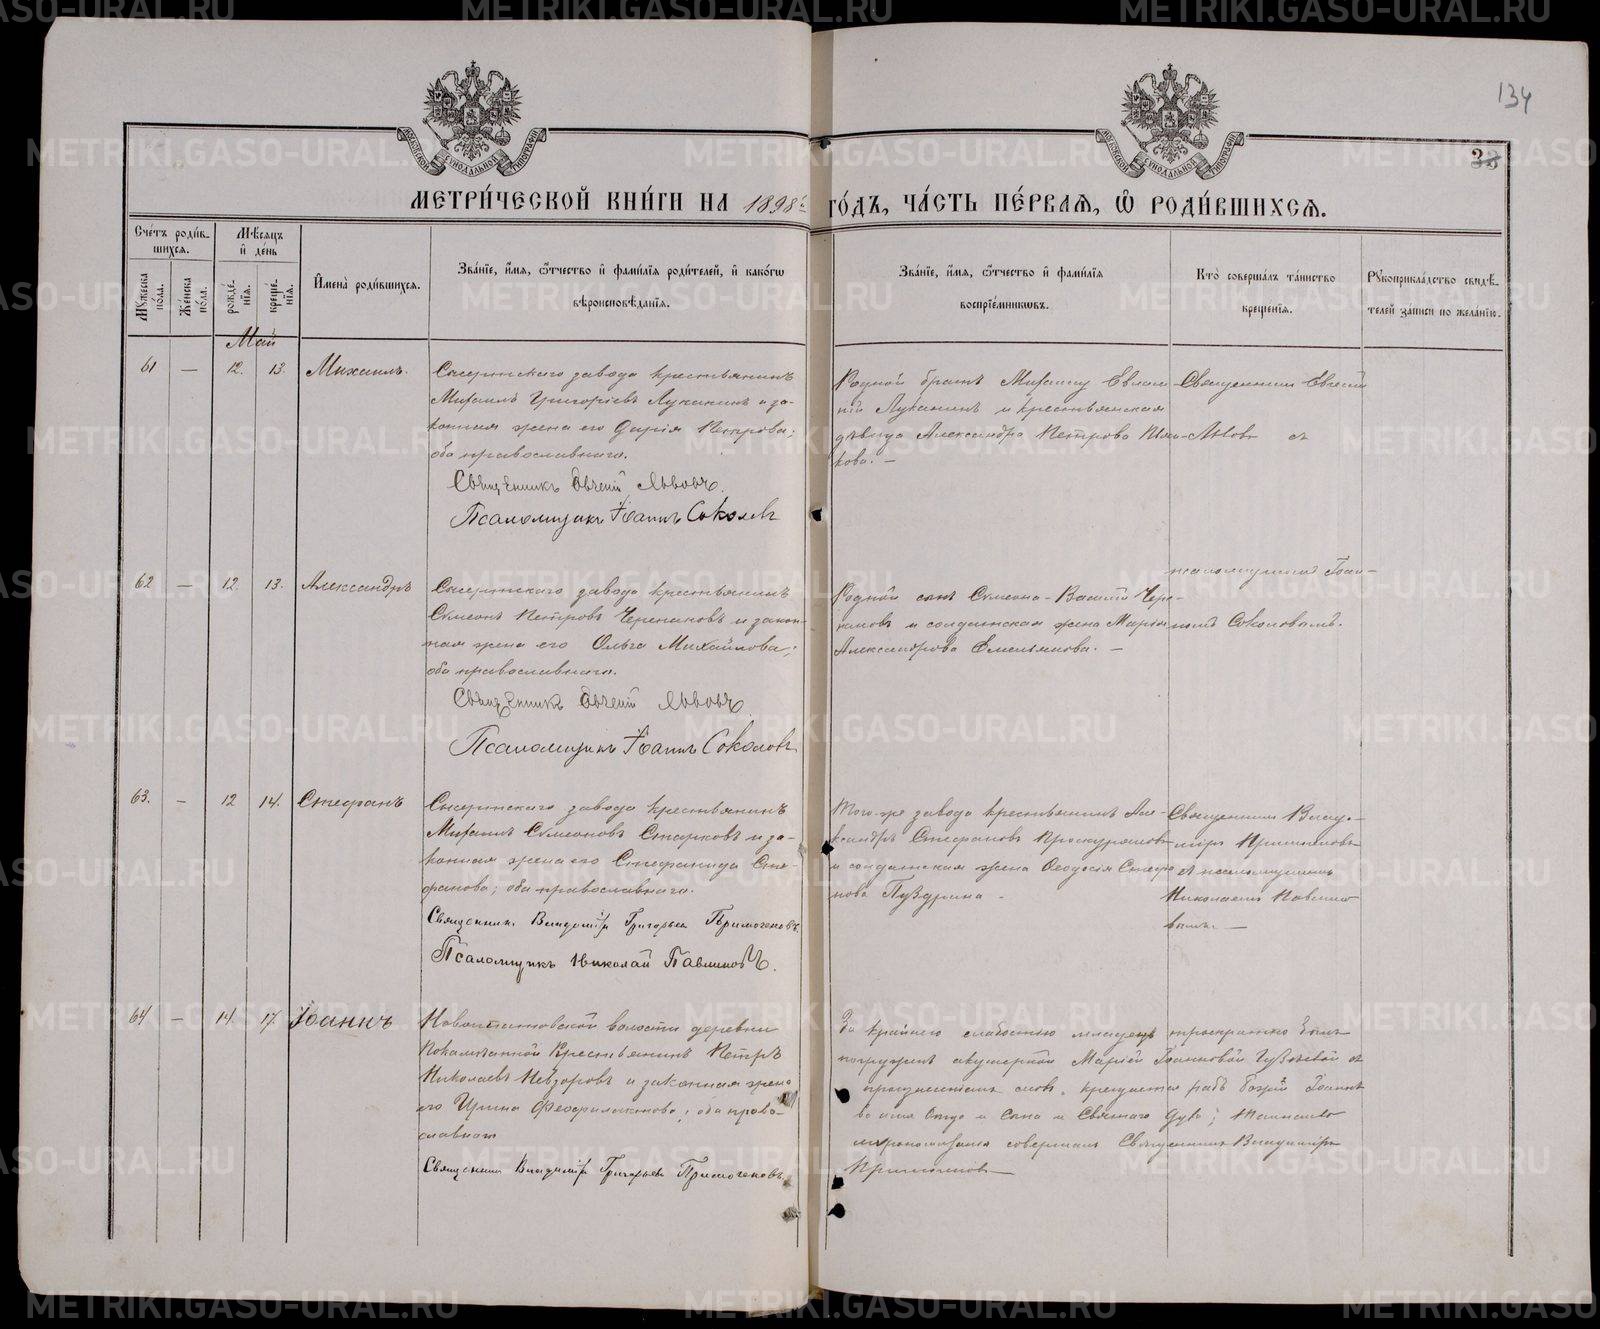 134
33
МЕТРИ́ЧЕСКОЙ КНИ́ГИ НА 1898й ГО́ДЪ, ЧА́СТЬ ПЕ́РВАѦ, Ѡ РОДИ́ВШИХСѦ.
Сче́тъ роди́в-
шихсѧ.
Мѣ́сѧцъ
и҆ де́нь
Мꙋ́жеска
по́ла.
Же́нска
по́ла.
рожде́-
нїѧ.
креще́-
нїѧ.
И҆мена̀ роди́вшихсѧ.
Зва́нїе, и҆́мѧ, ѻ҆́тчество и҆ фами́лїѧ роди́телей, и҆ како́гѡ
вѣроисповѣ́данїѧ.
Зва́нїе, и҆́мѧ, ѻ҆́тчество и҆ фами́лїѧ
воспрїе́мникѡвъ.
Кто̀ соверша́лъ та́инство
креще́нїѧ.
Рꙋкоприкла́дство свидѣ́-
телей за́писи по жела́нїю.
Май
61 — 12. 13. Михаилъ.
Сысертскаго завода крестьянинъ
Михаилъ Григорьевъ Луканинъ и за-
конная жена его Дарія Петрова;
оба православнаго.
Священникъ Евгеній Львовъ.
Псаломщикъ Іоаннъ Соколовъ
Родной братъ Михаилу Евлам-
пій Луканинъ и крестьянская
дѣвица Александра Петрова
кова. —
Священникъ Евгеній
Львовъ съ
62 — 12. 13. Александръ
Сысертскаго завода крестьянинъ
Сѵмеонъ Петровъ Черепановъ и закон-
ная жена его Ольга Михайлова;
оба православнаго.
Священникъ Евгеній Львовъ
Псаломщикъ Іоаннъ Соколовъ
Родной сынъ Сѵмеона - Василій Чере-
пановъ и солдатская жена Марія
Александрова Емельянова. —
псаломщикомъ Іоан-
номъ Соколовымъ.
63. — 12 14. Стефанъ
Сысертскаго завода крестьянинъ
Михаилъ Сѵмеоновъ Старковъ и за-
конная жена его Стефанида Сте-
фанова; оба православнаго.
Священникъ Владиміръ Григорьевъ Примогеновъ
Псаломщикъ Николай Павлиновъ.
Того-же завода крестьянинъ Але-
ксандръ Стефановъ Проскуряковъ
и солдатская жена Ѳеодосія Стефа-
нова Пуздрина —
Священникъ Влади-
міръ Примогеновъ
съ псаломщикомъ
Николаемъ Павлино-
вымъ. —
64 — 14. 17. Іоаннъ
волости деревни
крестьянинъ Петръ
Николаевъ Невзоровъ и законная жена
его Ирина Феофилактова; оба право-
славнаго
Священникъ Владиміръ Григорьевъ Примогеновъ
За крайнею слабостію младенца троекратно былъ
погруженъ акушеркой Маріей Іоанновой съ
произнесеніемъ словъ, крещается рабъ Божій Іоаннъ
во имя Отца и Сына и Святаго Духа; таинство
миропомазанія совершалъ Священникъ Владиміръ
Примогеновъ —